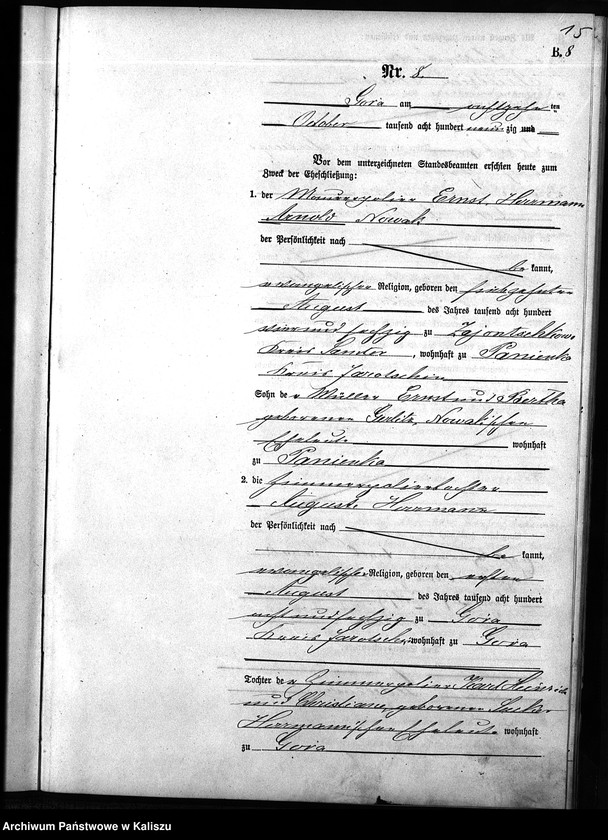 15
B. 8
Nr. 8.
Gora am achtzehn ten
October tausend acht hundert neun zig und
Vor dem unterzeichneten Standesbeamten erschien heute zum
Zweck der Eheschließung:
1. der Maurerpolier Ernst Herrmann
Arnold Nowak
der Persönlichkeit nach
be kannt,
evangelischer Religion, geboren den
August des Jahres tausend acht hundert
vier und sechzig zu Zajontschkowo
Kreis Samter, wohnhaft zu Panienka
Kreis Jarotschin
Sohn der Müller Ernst und Bertha
geborener Nowak'schen
Eheleute wohnhaft
zu Panienka
2. die Zimmerpoliertochter
Auguste Herrmann
der Persönlichkeit nach
be kannt,
evangelischer Religion, geboren den ersten
August des Jahres tausend acht hundert
acht und sechzig zu Gora
Kreis Jarotschin, wohnhaft zu Gora
Tochter der Zimmerpolier Karl Heinrich
und Christiane, geborener
Herrmann'schen Eheleute wohnhaft
zu Gora
Archiwum Państwowe w Kaliszu